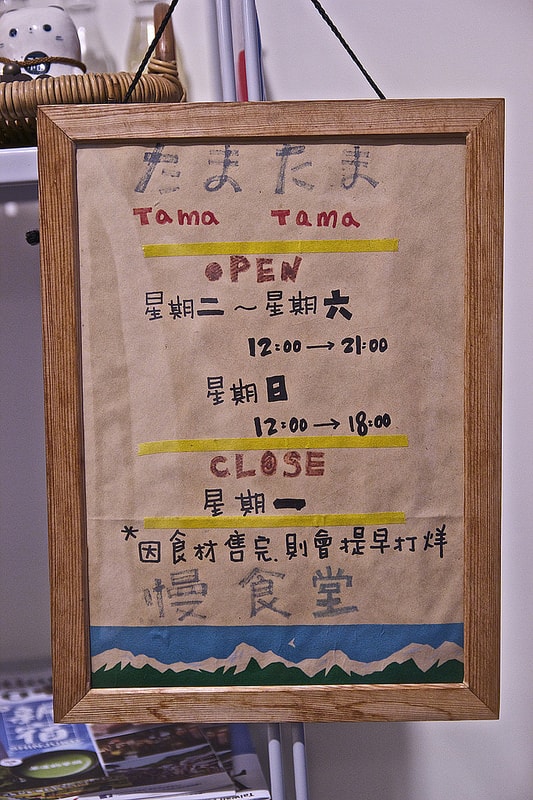 たま たま
Tama Tama
OPEN
星期二～星期六
12:00→21:00
星期日
12:00→18:00
CLOSE
星期一
*因食材售完,則會提早打烊
慢食堂